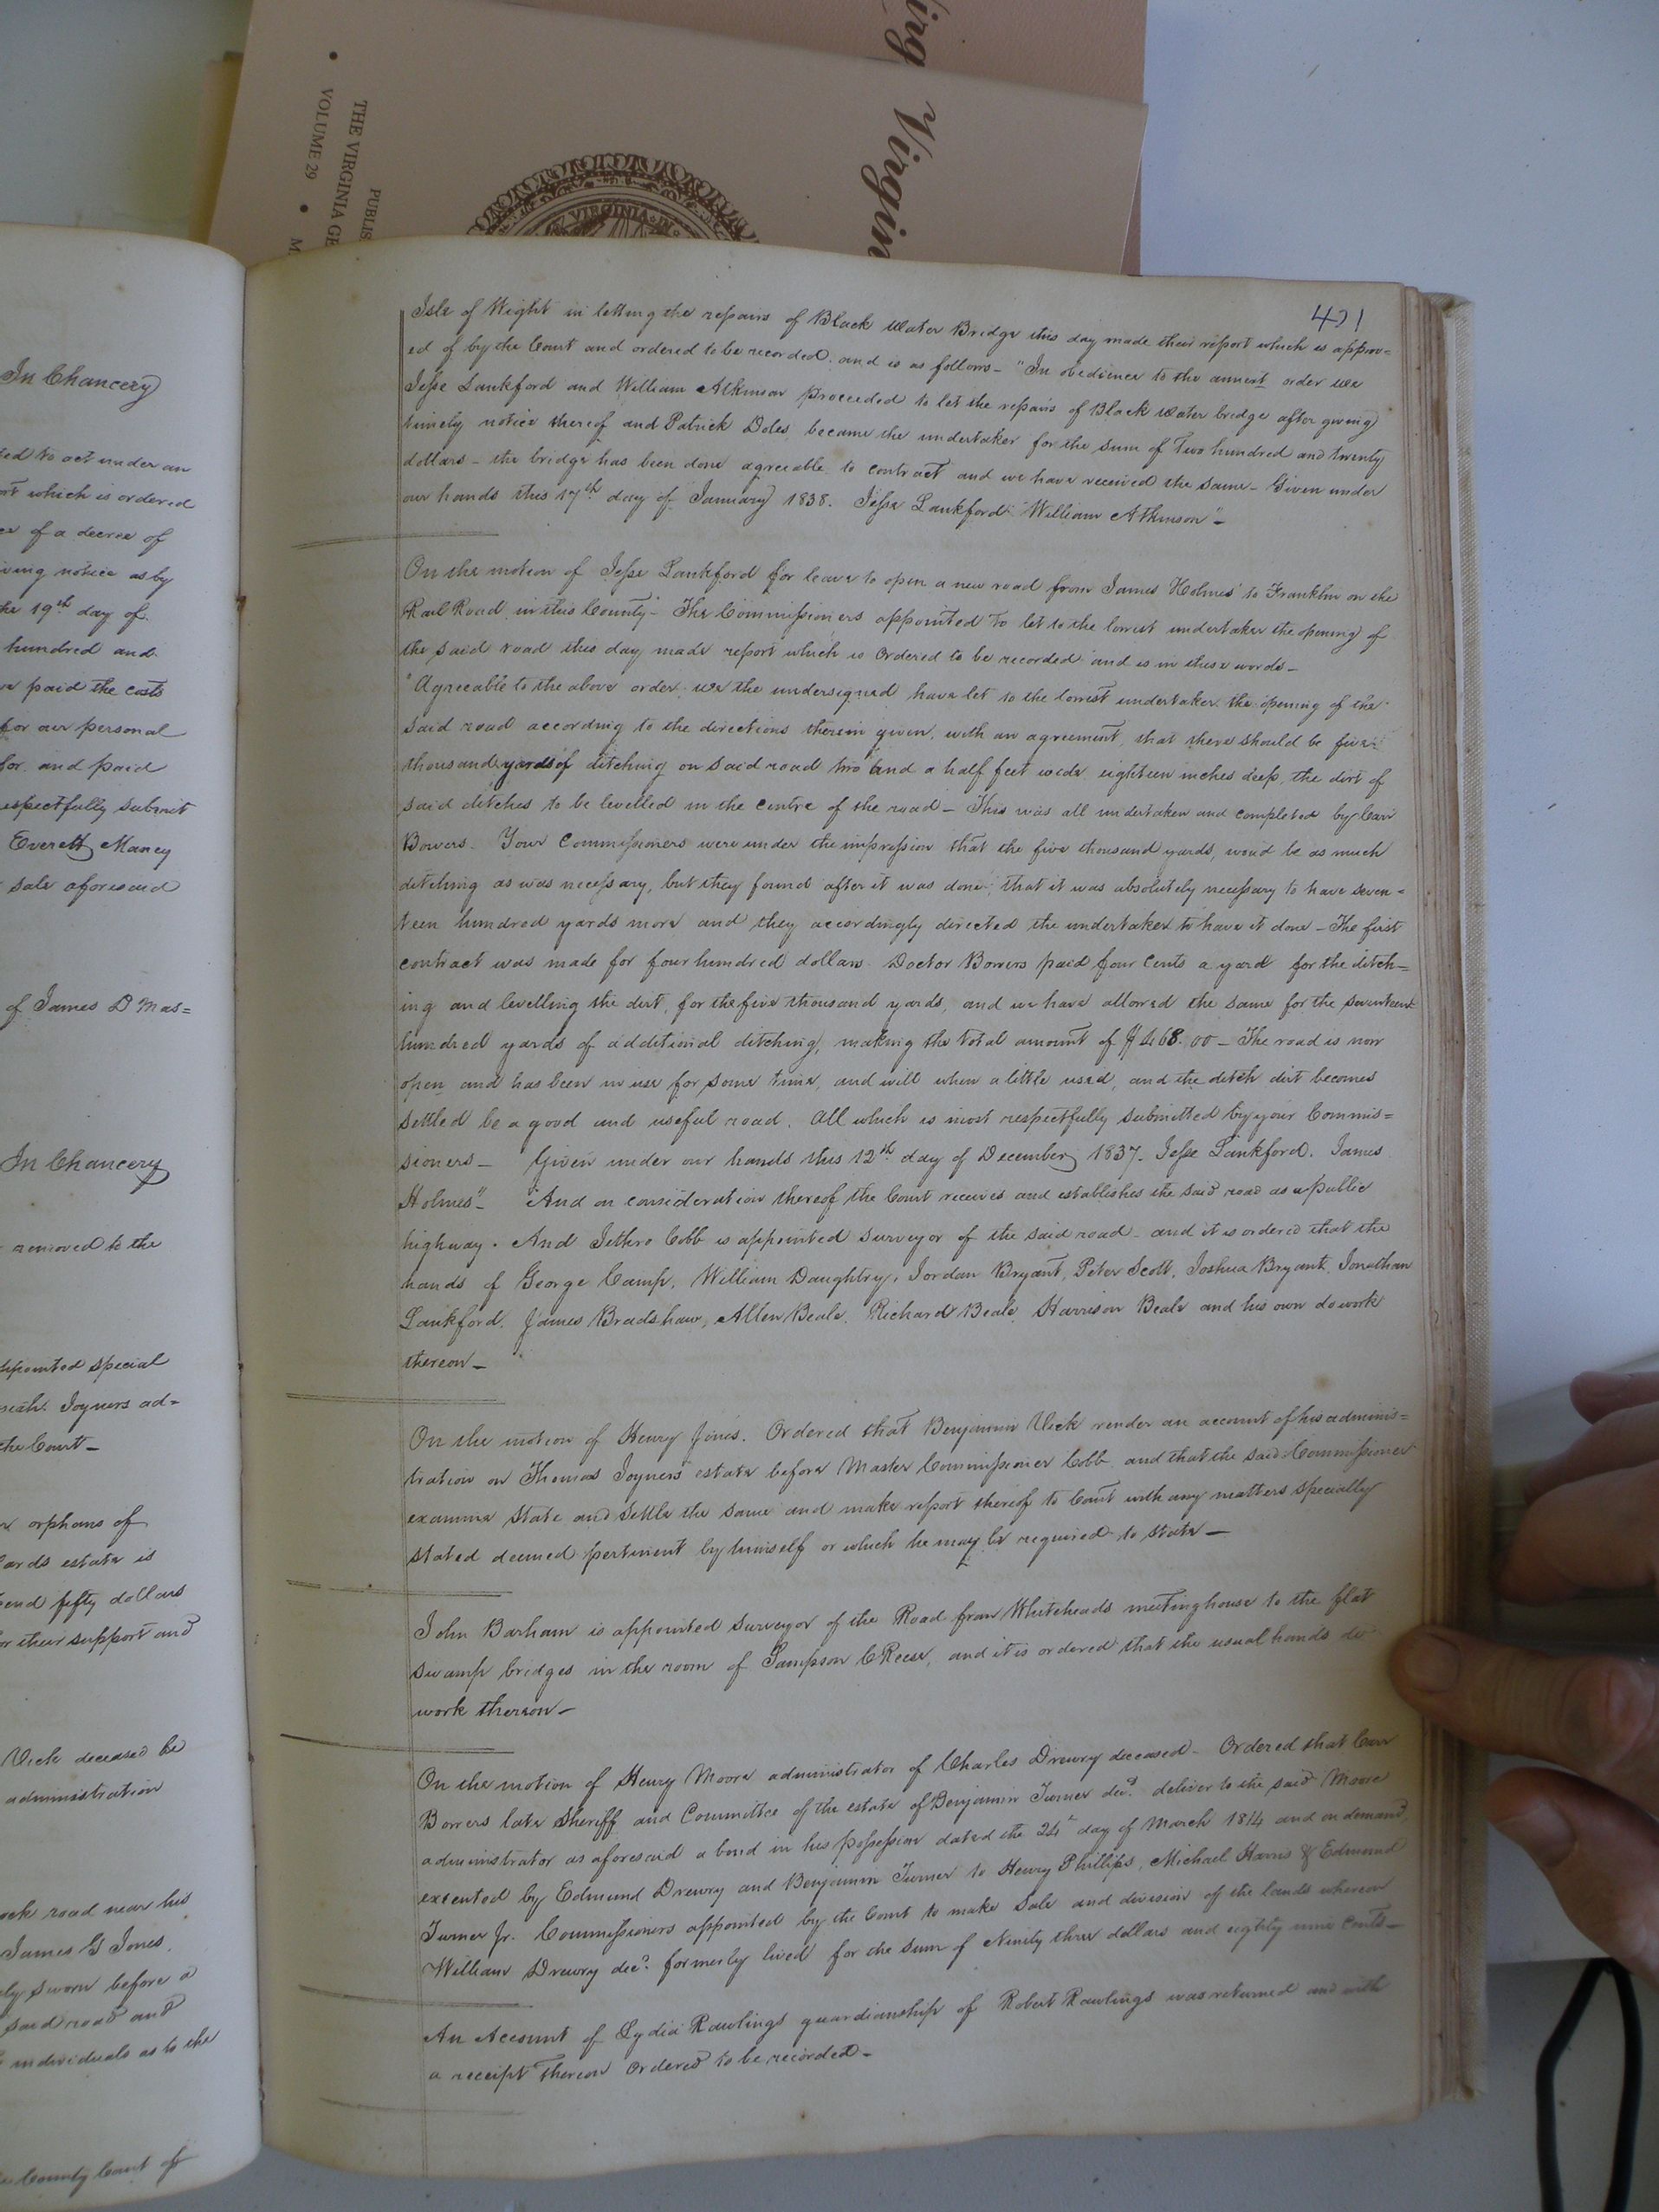 ing Virgin
PUBLIS
THE VIRGINIA GE
VOLUME 29 • M
VIRGINIA
In Chancery
ted to act under an
ort which is ordered
ce of a decree of
iving notice as by
the 19th day of
hundred and
ve paid the costs
for our personal
for and paid
respectfully submit
Everett Mancy
sale aforesaid
of James D Mas=
In Chancery
removed to the
appointed special
Joyners ad=
the Court_
orphans of
ards estate is
and fifty dollars
or their support and
Vick deceased be
administration
ock road near his
James G Jones,
ly sworn before a
said road and
individuals as to the
County Court of
421
Isle of Wight in letting the repairs of Black Water Bridge this day made their report which is approv=
ed of by the Court and ordered to be recorded and is as follows_ "In obedience to the annext order we
Jesse Lankford and William Atkinson proceeded to let the repairs of Black Water bridge after giving
timely notice thereof and Patrick Doles, became the undertaker for the sum of Two hundred and twenty
dollars_ the bridge has been done agreeable to contract and we have received the same_ Given under
our hands this 17th day of January 1838. Jesse Lankford William Atkinson"_
On the motion of Jesse Lankford for leave to open a new road from James Holmes' to Franklin on the
Rail Road in this County_ The Commissioners appointed to let to the lowest undertaker the opening of
the said road this day made report which is ordered to be recorded and is in these words_
"Agreeable to the above order we the undersigned have let to the lowest undertaker the opening of the
said road according to the directions therein given, with an agreement, that there should be five
thousand yards of ditching on said road two and a half feet wide eighteen inches deep, the dirt of
said ditches to be levelled in the centre of the road_ This was all undertaken and completed by Carr
Bowers. Your Commissioners were under the impression that the five thousand yards, would be as much
ditching as was necessary, but they found after it was done, that it was absolutely necessary to have seven=
teen hundred yards more and they accordingly directed the undertaker to have it done_ The first
contract was made for four hundred dollars. Doctor Bowers paid four cents a yard for the ditch=
ing and levelling the dirt, for the five thousand yards, and we have allowed the same for the seventeen
hundred yards of additional ditching, making the total amount of $468.00_ The road is now
open and has been in use for some time, and will when a little used, and the ditch dirt becomes
settled be a good and useful road. All which is most respectfully submitted by your Commis=
sioners_ Given under our hands this 12th day of December 1837. Jesse Lankford. James
Holmes"_ And on consideration thereof the Court receives and establishes the said road as a public
highway. And Jethro Cobb is appointed surveyor of the said road and it is ordered that the
hands of George Camp, William Daughtry, Jordan Bryant, Peter Scott, Joshua Bryant, Jonathan
Lankford, James Bradshaw, Allen Beale, Richard Beale, Harrison Beale and his own do work
thereon_
On the motion of Henry Jones. Ordered that Benjamin Vick render an account of his adminis=
tration on Thomas Joyners estate before Master Commissioner Cobb and that the said Commissioner
examine state and settle the same and make report thereof to Court with any matters specially
stated deemed pertinent by himself or which he may be required to state_
John Barham is appointed surveyor of the Road from Whiteheads meetinghouse to the flat
swamp bridges in the room of Sampson C Reese, and it is ordered that the usual hands do
work thereon_
On the motion of Henry Moore administrator of Charles Drewry deceased_ Ordered that Carr
Bowers late Sheriff and Committee of the estate of Benjamin Turner decd. deliver to the said Moore
administrator as aforesaid a bond in his possession dated the 24th day of March 1814 and on demand,
executed by Edmund Drewry and Benjamin Turner to Henry Phillips, Michael Harris & Edmund
Turner Jr. Commissioners appointed by the Court to make sale and division of the lands whereon
William Drewry decd. formerly lived for the sum of Ninety three dollars and eighty nine cents_
An Account of Lydia Rawlings guardianship of Robert Rawlings was returned and with
a receipt thereon ordered to be recorded_